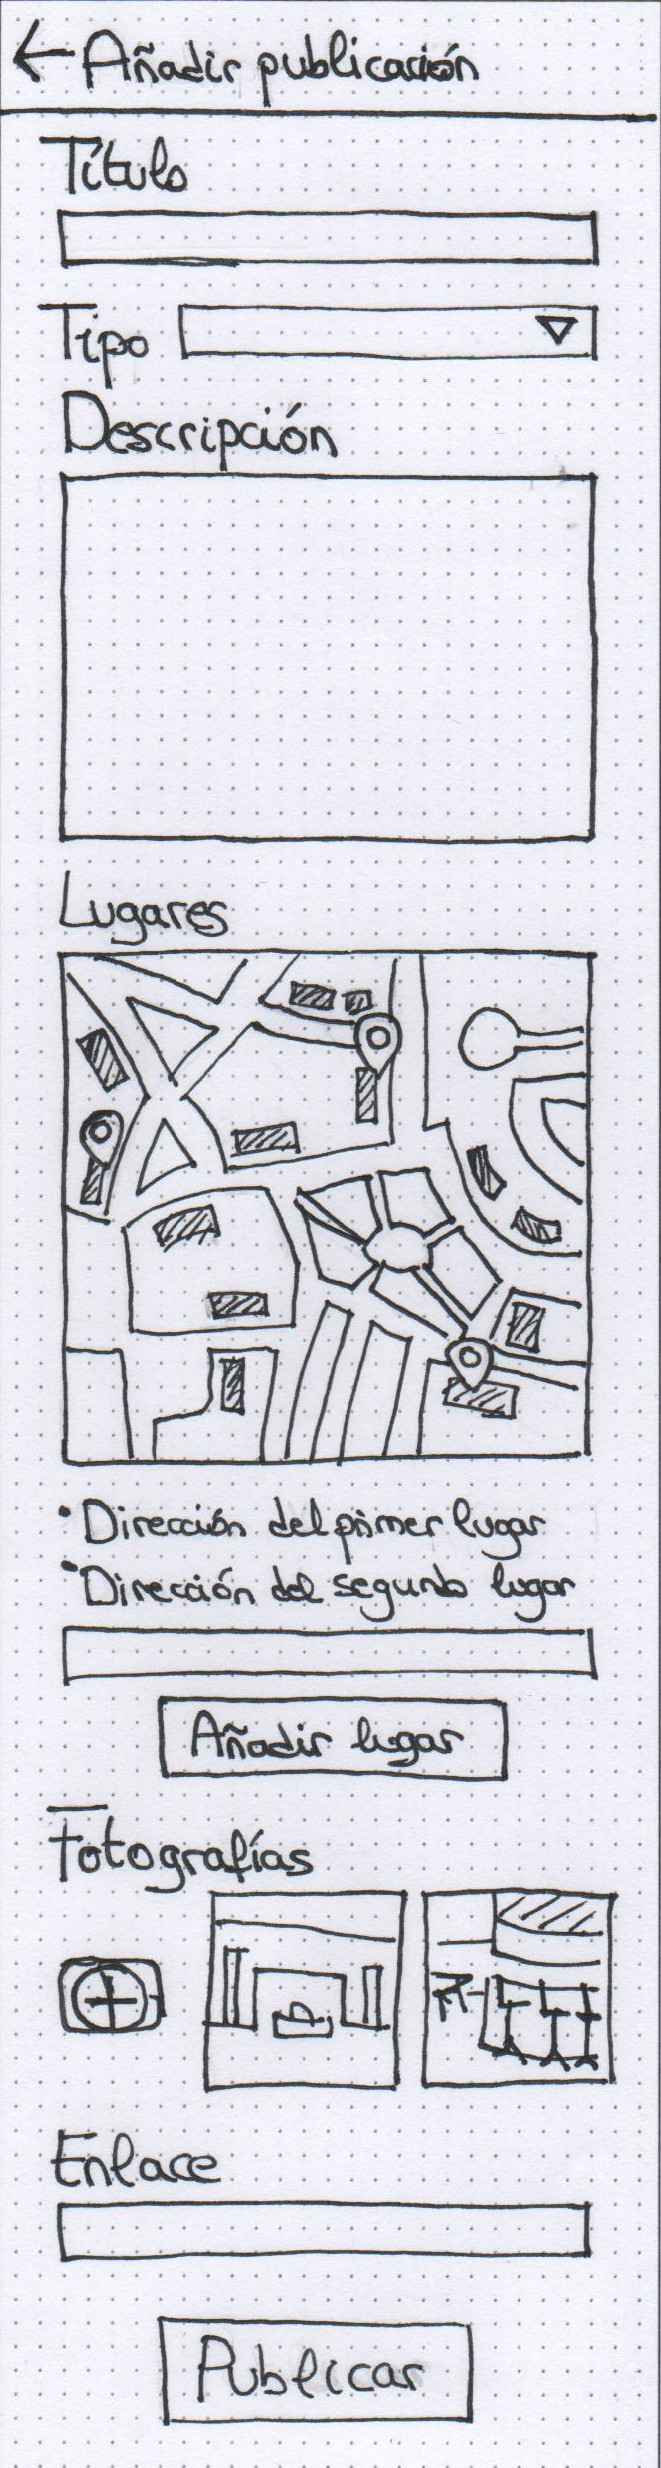 ← Añadir publicación
Título
Tipo
Descripción
Lugares
• Dirección del primer lugar
• Dirección del segundo lugar
Añadir lugar
Fotografías
Enlace
Publicar